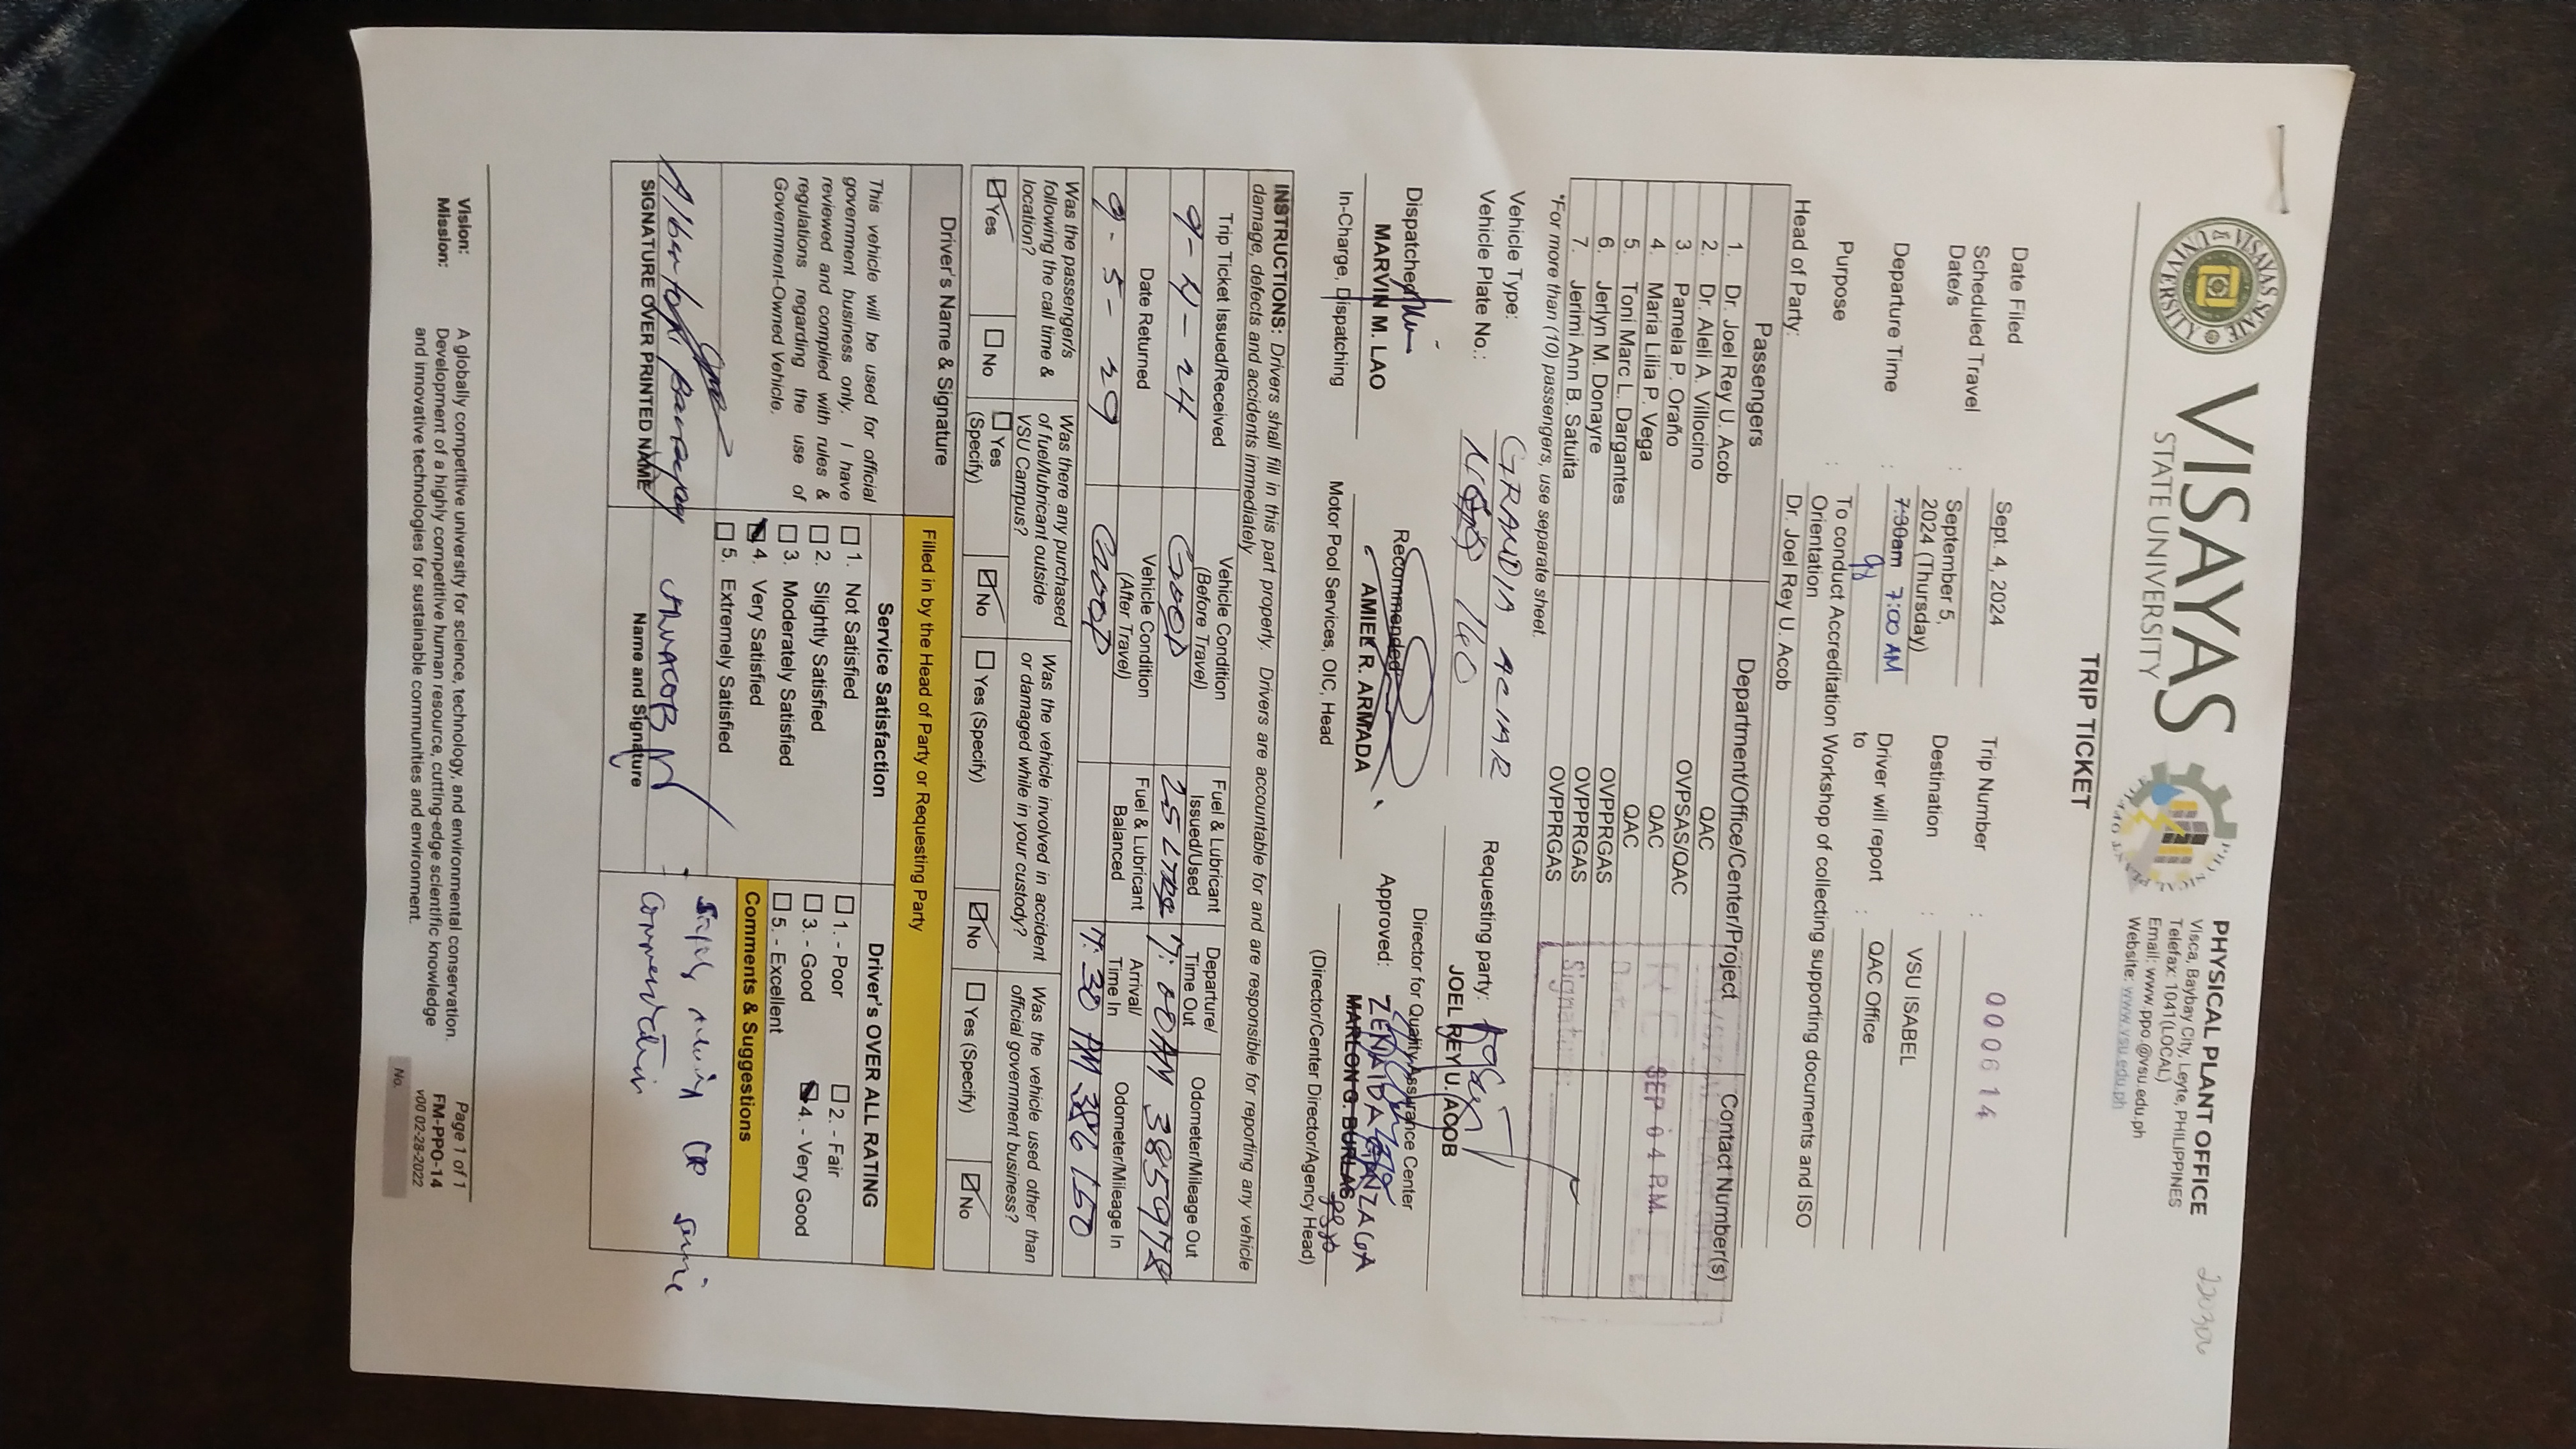 VISAYAS
STATE UNIVERSITY
PHYSICAL PLANT OFFICE
Visca, Baybay City, Leyte, PHILIPPINES
Telefax: 1041(LOCAL)
Email: www.ppo.@vsu.edu,ph
Website: www.vsu.edu.ph
TRIP TICKET
Date Filed Sept. 4, 2024 Trip Number : 000614
Scheduled Travel Date/s : September 5, 2024 (Thursday) Destination : VSU ISABEL
Departure Time : 7:30am 7:00 AM Driver will report to : QAC Office
Purpose : To conduct Accreditation Workshop of collecting supporting documents and ISO Orientation
Head of Party: Dr. Joel Rey U. Acob
Passengers Department/Office/Center/Project Contact Number(s)
1. Dr. Joel Rey U. Acob QAC
2. Dr. Aleli A. Villocino OVPSAS/QAC
3. Pamela P. Oraño QAC
4. Maria Lilia P. Vega QAC
5. Toni Marc L. Dargantes OVPPRGAS
6. Jerlyn M. Donayre OVPPRGAS
7. Jerimi Ann B. Satuita OVPPRGAS
SEP 04
*For more than (10) passengers, use separate sheet.
Vehicle Type: GRANDIA
Vehicle Plate No.: 160
Requesting party:
JOEL REY U. ACOB
Director for Quality Assurance Center
Dispatched Recommended Approved:
ZENAIDA GONZAGA
MARVIN M. LAO AMIER R. ARMADA MARLON G. BURLAS
In-Charge, Dispatching Motor Pool Services, OIC, Head (Director/Center Director/Agency Head)
INSTRUCTIONS: Drivers shall fill in this part properly. Drivers are accountable for and are responsible for reporting any vehicle
damage, defects and accidents immediately
Trip Ticket Issued/Received Vehicle Condition (Before Travel) Fuel & Lubricant Issued/Used Departure/ Time Out Odometer/Mileage Out
GOOD 7:00AM
Date Returned Vehicle Condition (After Travel) Fuel & Lubricant Balanced Arrival/ Time In Odometer/Mileage In
GOOD PM
Was the passenger/s following the call time & location? Was there any purchased of fuel/lubricant outside VSU Campus? Was the vehicle involved in accident or damaged while in your custody? Was the vehicle used other than official government business?
Yes No Yes (Specify) No Yes (Specify) No Yes (Specify) No
Driver's Name & Signature Filled in by the Head of Party or Requesting Party
Service Satisfaction Driver's OVER ALL RATING
This vehicle will be used for official
government business only. I have
reviewed and complied with rules &
regulations regarding the use of
Government-Owned Vehicle.
1. Not Satisfied
2. Slightly Satisfied
3. Moderately Satisfied
4. Very Satisfied
5. Extremely Satisfied
1. - Poor 2. - Fair
3. - Good 4. - Very Good
5. - Excellent
Comments & Suggestions
SIGNATURE OVER PRINTED NAME
Name and Signature
Vision: A globally competitive university for science, technology, and environmental conservation.
Mission: Development of a highly competitive human resource, cutting-edge scientific knowledge
and innovative technologies for sustainable communities and environment.
Page 1 of 1
FM-PPO-14
v00 02-28-2022
No.